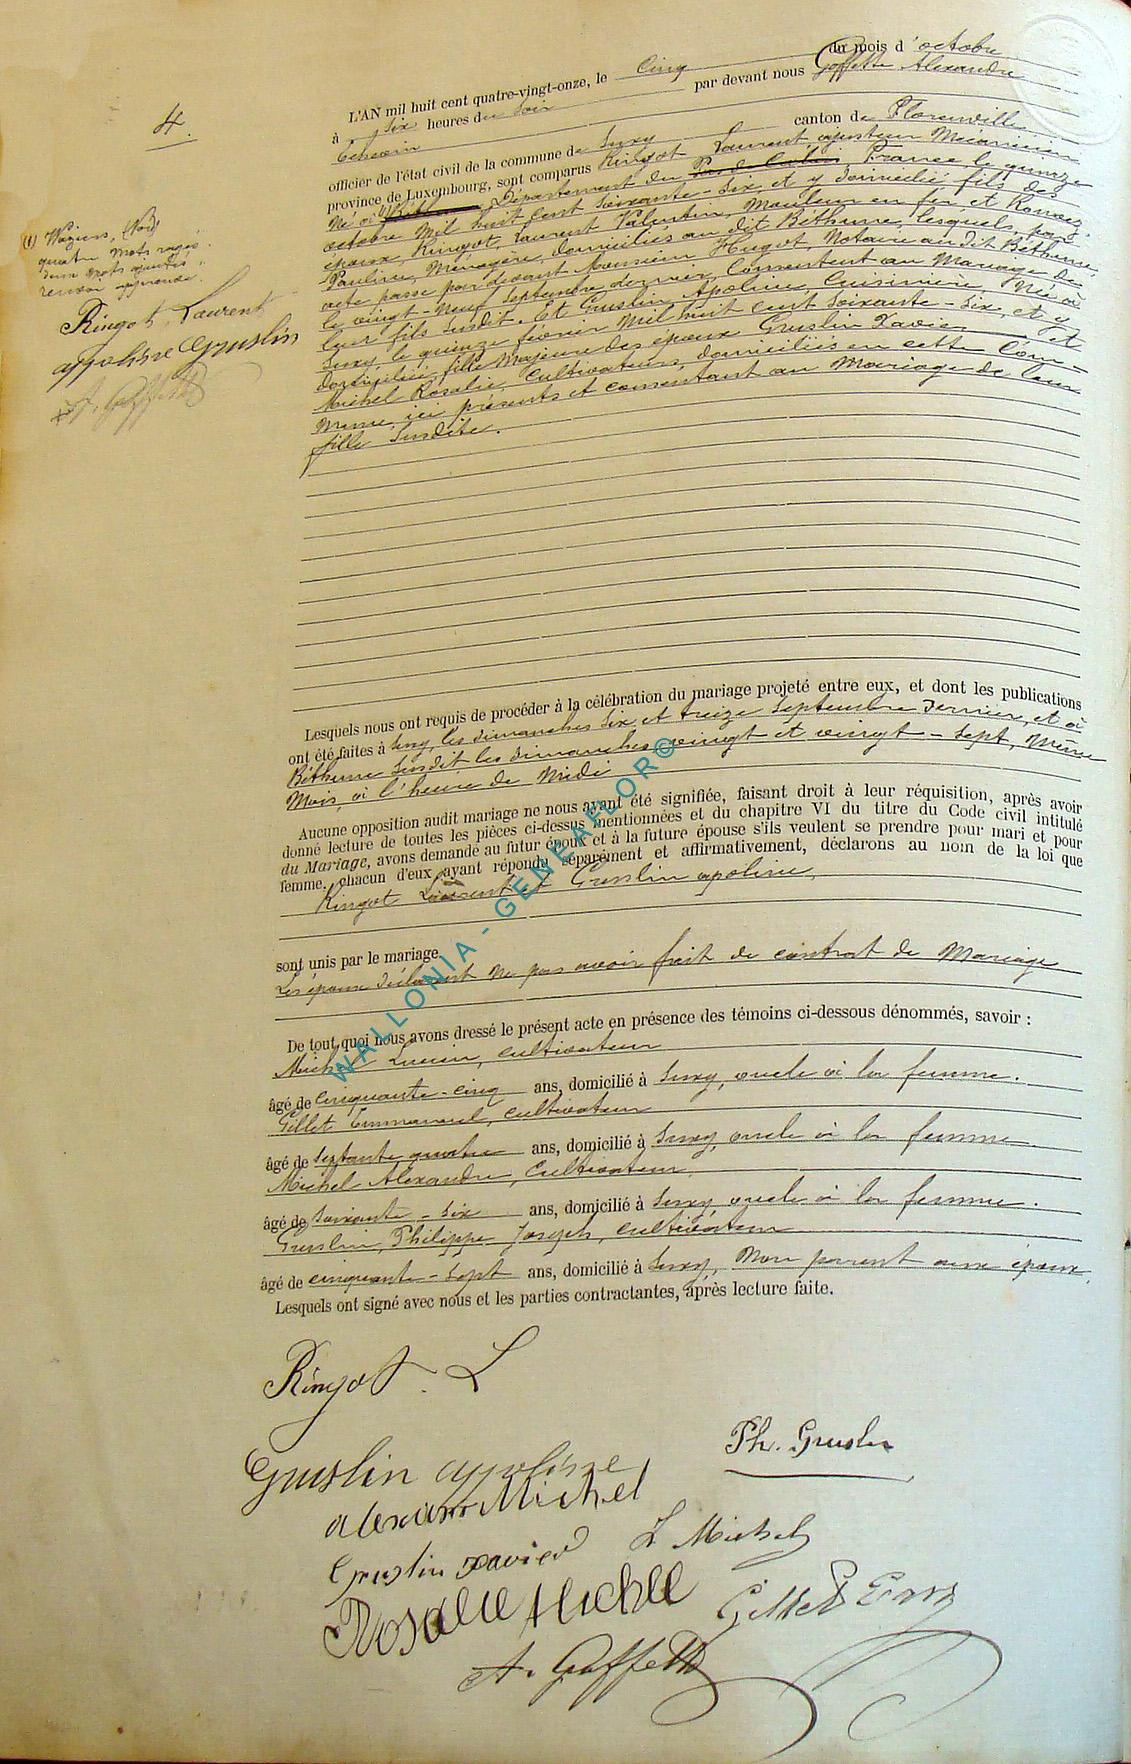 4.
L'AN mil huit cent quatre-vingt-onze, le cinq du mois d'octobre
à six heures du soir par devant nous Goffette Alexandre
Echevin
officier de l'état civil de la commune de Suxy canton de Florenville
province de Luxembourg, sont comparus Ringot Laurent, ajusteur Mécanicien
Né à (1) Béthune, Département du Pas de Calais, France, le quinze
octobre Mil huit cent soixante-six, et y domicilié fils des
époux Ringot, Laurent Valentin, Mouleur en fer et
Pauline, Ménagère, domiciliés au dit Béthune, lesquels, par
acte passé par devant Monsieur Hugot, Notaire au dit Béthune,
le vingt-neuf septembre dernier, Consentent au Mariage de
leur fils susdit. Et Gruslin Apoline, Cuisinière, Née à
Suxy, le quinze février Mil huit cent soixante-six, et y
domiciliée, fille Majeure des époux Gruslin Xavier et
Michel Rosalie, Cultivateurs, domiciliés en cette Com-
mune, ici présents et consentant au Mariage de leur
fille susdite.
(1) Waziers, (Nord)
quatre mots rayés
deux mots ajoutés
renvoi approuvé.
Ringot, Laurent
appolisse Gruslin
A. Goffette
Lesquels nous ont requis de procéder à la célébration du mariage projeté entre eux, et dont les publications
ont été faites à Suxy, les dimanches six et treize septembre dernier, et à
Béthune susdit les dimanches vingt et vingt-sept, même
Mois, à l'heure de Midi
Aucune opposition audit mariage ne nous ayant été signifiée, faisant droit à leur réquisition, après avoir
donné lecture de toutes les pièces ci-dessus mentionnées et du chapitre VI du titre du Code civil intitulé
du Mariage, avons demandé au futur époux et à la future épouse s'ils veulent se prendre pour mari et pour
femme, chacun d'eux ayant répondu séparément et affirmativement, déclarons au nom de la loi que
Ringot Laurent et Gruslin apoline,
sont unis par le mariage
Les époux déclarent ne pas avoir fait de contrat de Mariage
De tout quoi nous avons dressé le présent acte en présence des témoins ci-dessous dénommés, savoir :
Michel Lucien, cultivateur
âgé de cinquante-cinq ans, domicilié à Suxy, oncle à la femme.
Gillet Emmanuel, cultivateur
âgé de septante quatre ans, domicilié à Suxy, oncle à la femme
Michel Alexandre, Cultivateur
âgé de soixante-six ans, domicilié à Suxy, oncle à la femme.
Gruslin, Philippe Joseph, cultivateur
âgé de cinquante-sept ans, domicilié à Suxy, Non parent aux époux.
Lesquels ont signé avec nous et les parties contractantes, après lecture faite.
Ringot. L
Ph. Gruslin
Gruslin appolisse
alexandre Michel
Gruslin xavier L Michel
Rosalie Michel Gillet Em
A. Goffette
WALLONIA - GENEAFLOR©